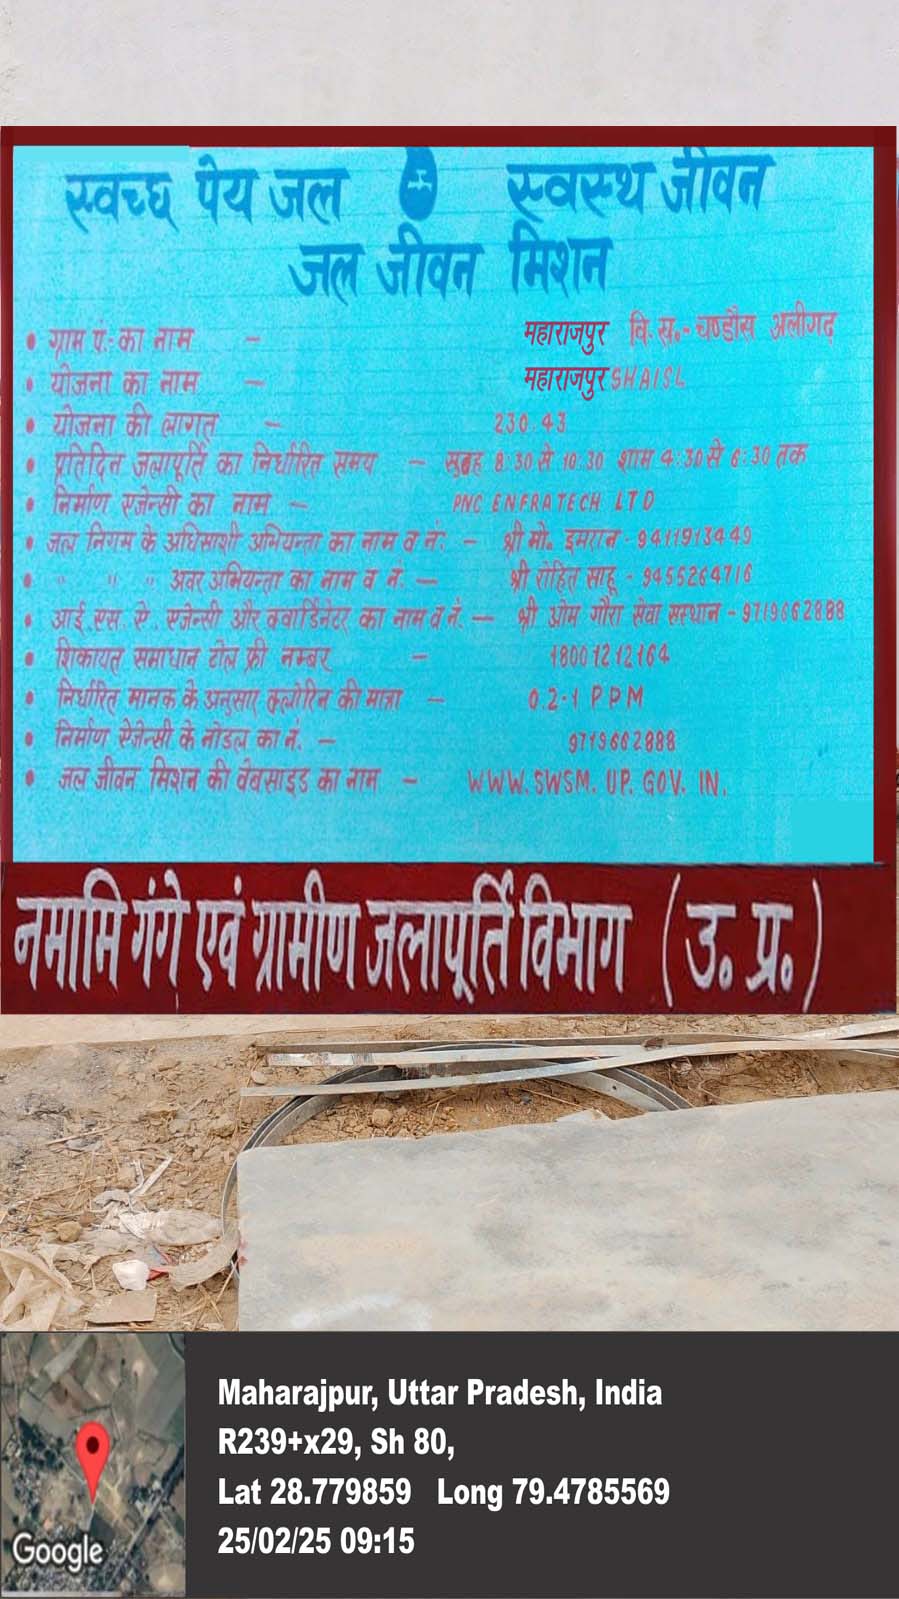 स्वच्छ पेय जल स्वस्थ जीवन
जल जीवन मिशन
• ग्राम पं:- का नाम – महाराजपुर वि. ख.- चण्डौस अलीगढ़
• योजना का नाम – महाराजपुर SHAISL
• योजना की लागत – 230.43
• प्रतिदिन जलापूर्ति का निर्धारित समय – सुबह 8:30 से 10:30 शाम 4:30 से 6:30 तक
• निर्माण एजेन्सी का नाम – PNC ENFRATECH LTD
• जल निगम के अधिसाशी अभियन्ता का नाम व नं. – श्री मो. इमरान - 9411913449
• " " " अवर अभियन्ता का नाम व नं. – श्री रोहित साहू - 9455264716
• आई.एस.ए. एजेन्सी और क्वार्डिनेटर का नाम व नं. – श्री ओम गौरा सेवा संस्थान - 9719662888
• शिकायत समाधान टोल फ्री नम्बर – 18001212164
• निर्धारित मानक के अनुसार क्लोरिन की मात्रा – 0.2-1 PPM
• निर्माण ऐजेन्सी के नोडल का नं. – 9719662888
• जल जीवन मिशन की वेबसाइड का नाम – WWW.SWSM.UP.GOV.IN.
नमामि गंगे एवं ग्रामीण जलापूर्ति विभाग (उ. प्र.)
Maharajpur, Uttar Pradesh, India
R239+x29, Sh 80,
Lat 28.779859 Long 79.4785569
25/02/25 09:15
Google